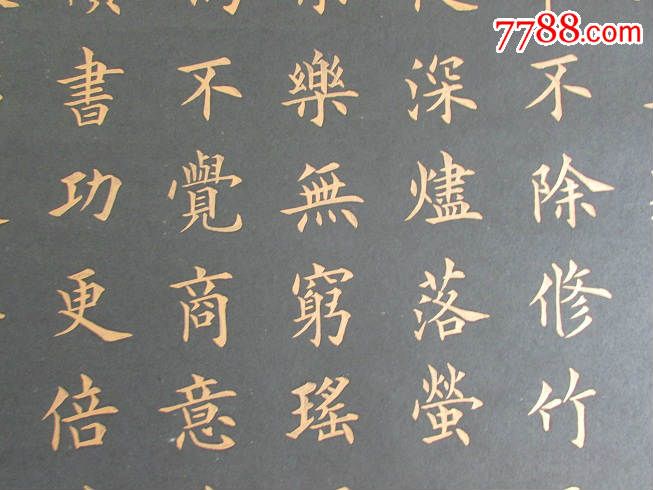 7788.com
不除修竹
深燼落螢
樂無窮瑤
不覺商意
書功更倍